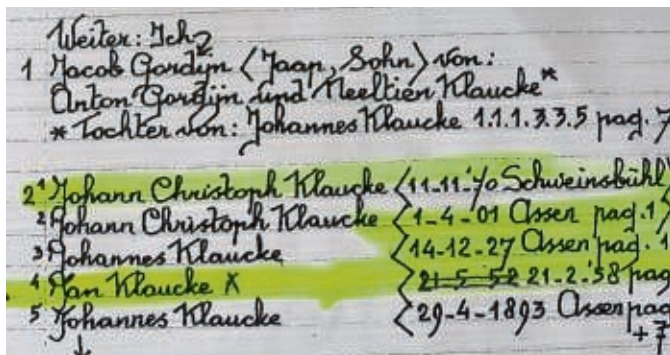 Weiter: Ich
1 Jacob Gordijn < Jaap, Sohn > von:
Anton Gordijn und Neeltien Klaucke*
* Tochter von: Johannes Klaucke 1.1.1.3.3.5 pag. 7
2 1 Johann Christoph Klaucke < 11-11-'70 Schweinsbühl
2 Johann Christoph Klaucke < 1-4-01 Assen pag. 1
3 Johannes Klaucke < 14-12-27 Assen pag. 1
4 Jan Klaucke X < 21-5-52 21-2-'58 pag
5 Johannes Klaucke < 29-4-1893 Assen pag
↓ + 7